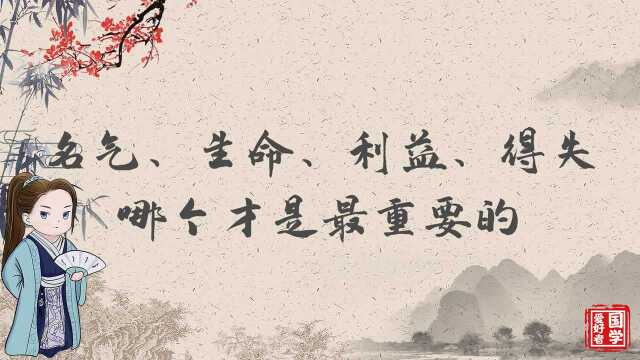 名气、生命、利益、得失
哪个才是最重要的
国学
爱好者